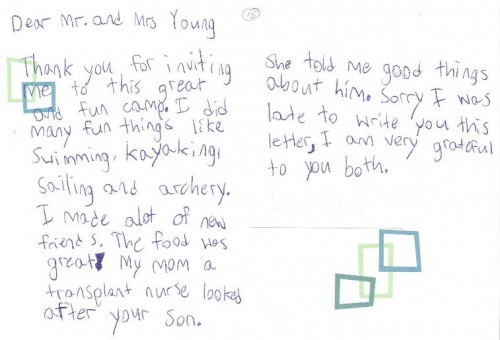 Dear Mr. and Mrs Young
Thank you for inviting
me to this great
and fun camp. I did
many fun things like
swimming, kayaking,
sailing and archery.
I made alot of new
friends. The food was
great! My mom a
transplant nurse looked
after your son.
15
She told me good things
about him. Sorry I was
late to write you this
letter, I am very grateful
to you both.